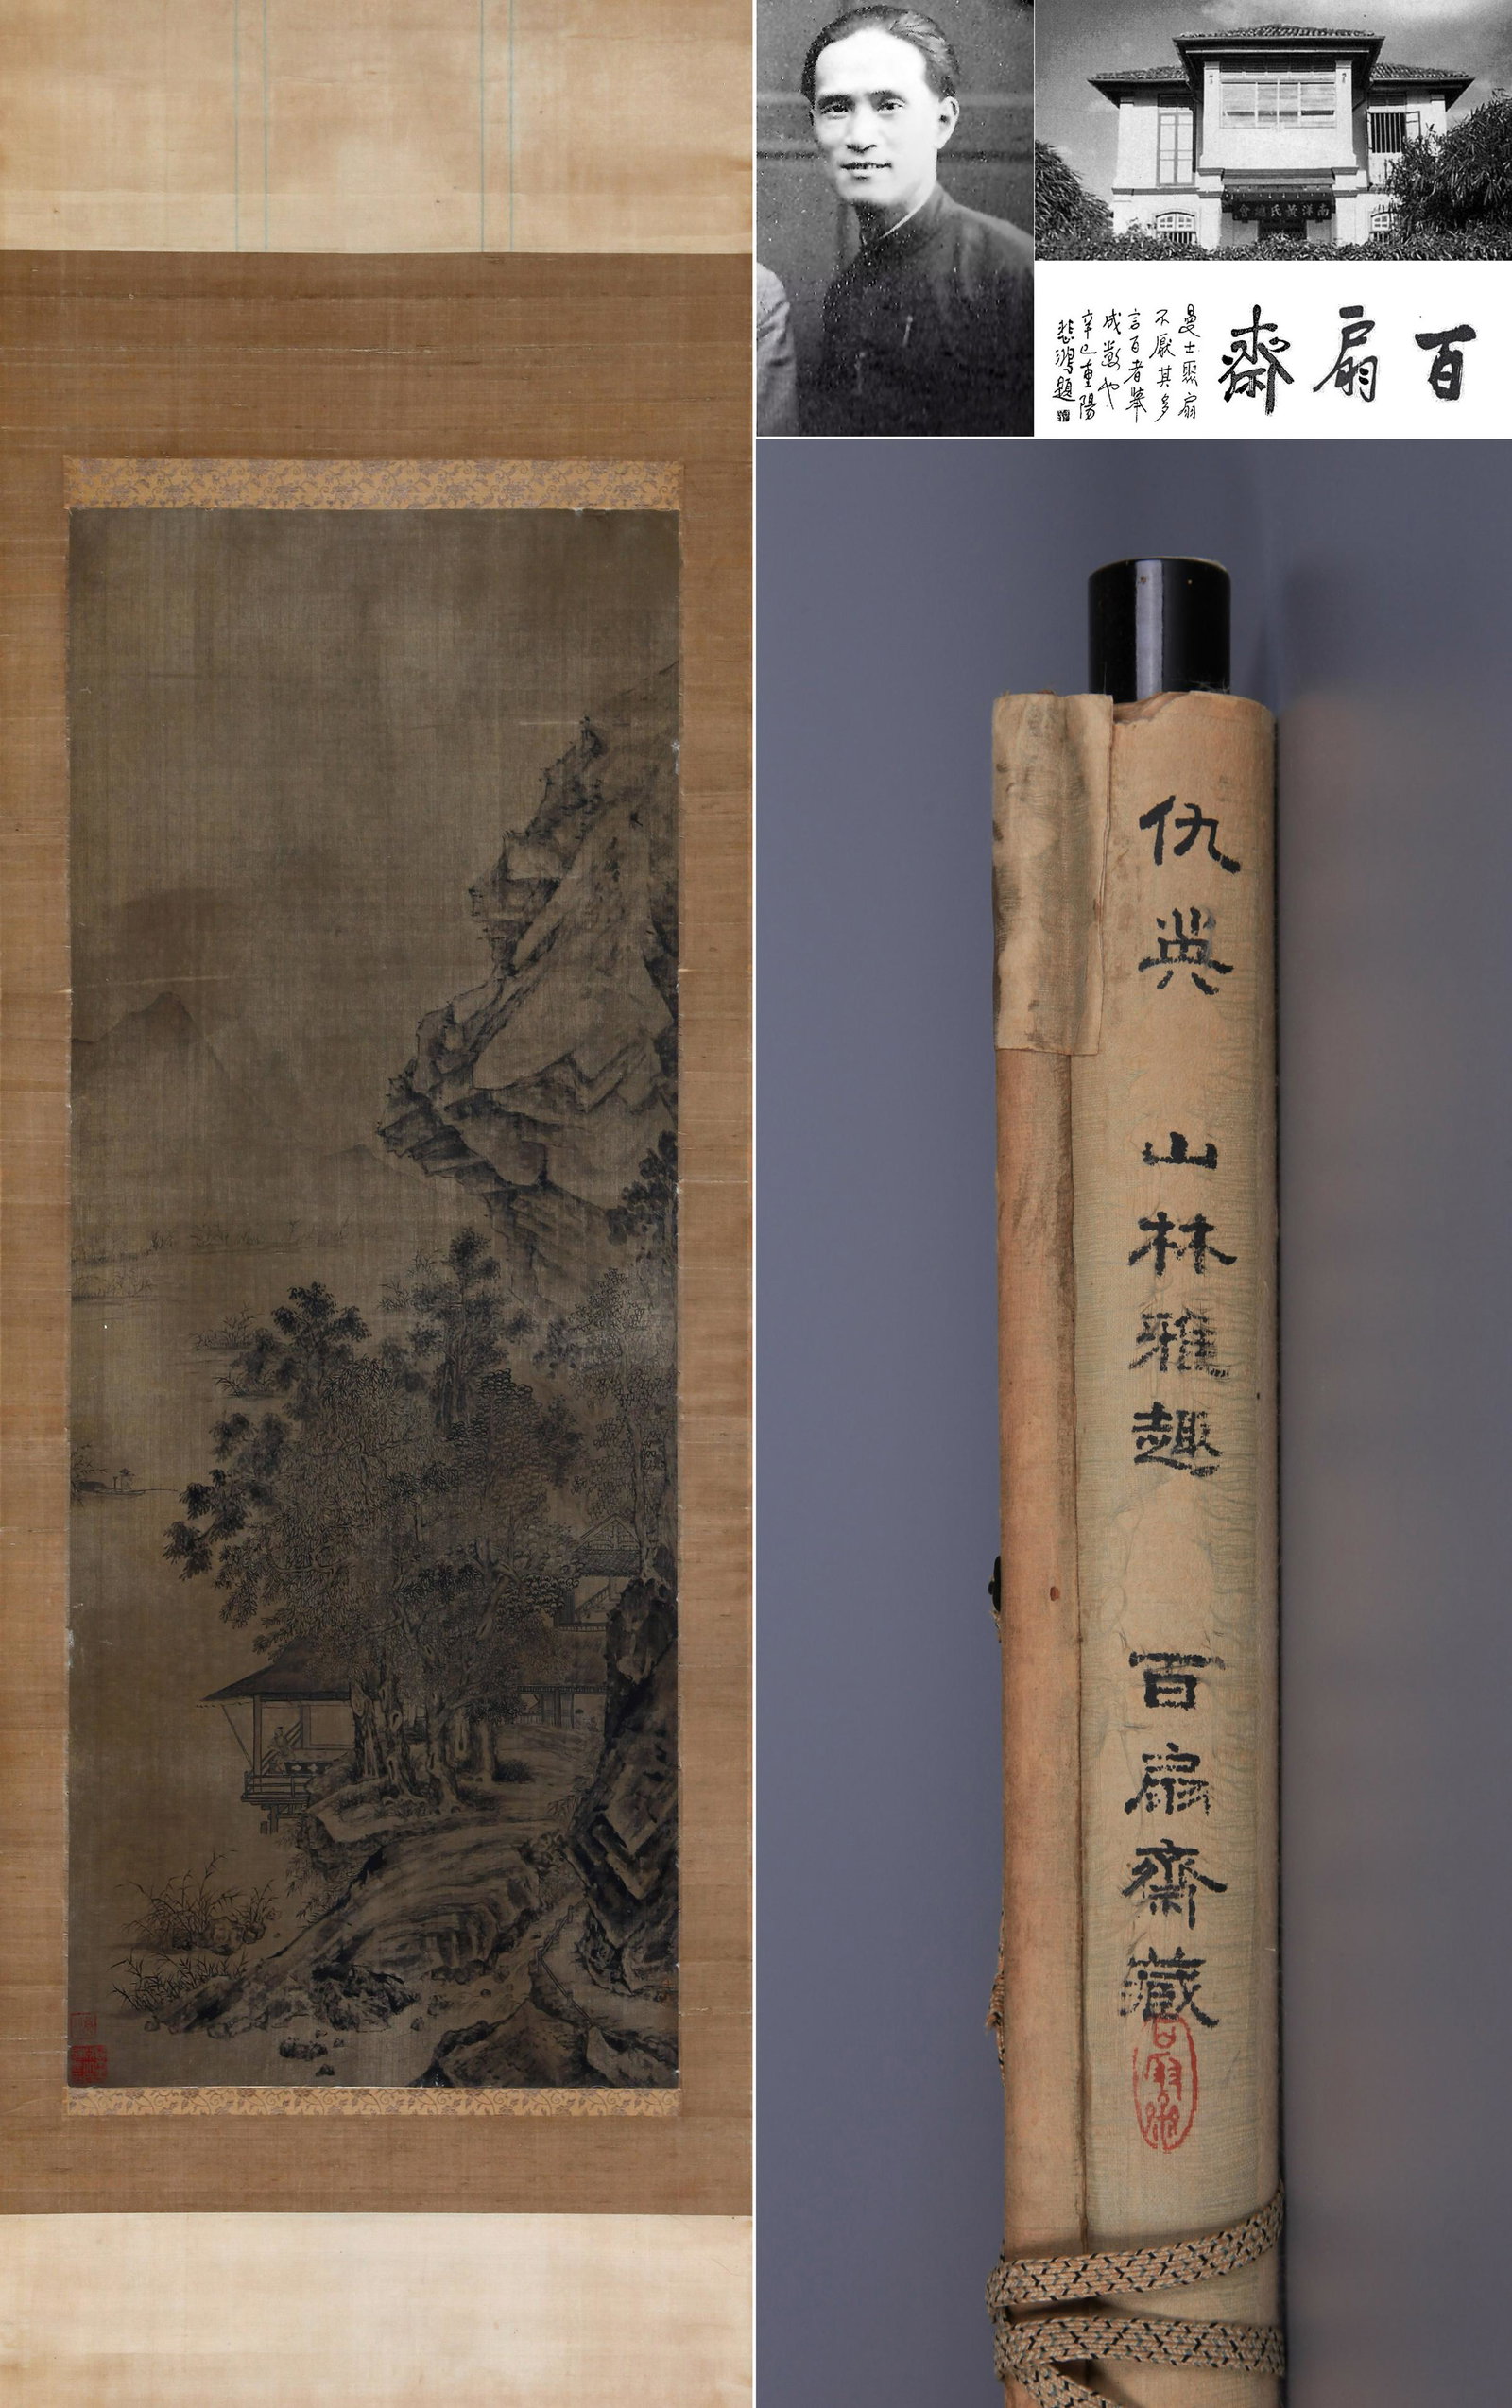 南洋黃氏總會
百扇齋
曼士聚扇
不厭其多
言百者舉
成數也
辛巳重陽
悲鴻題
仇英 山林雅趣 百扇齋藏
百扇齋